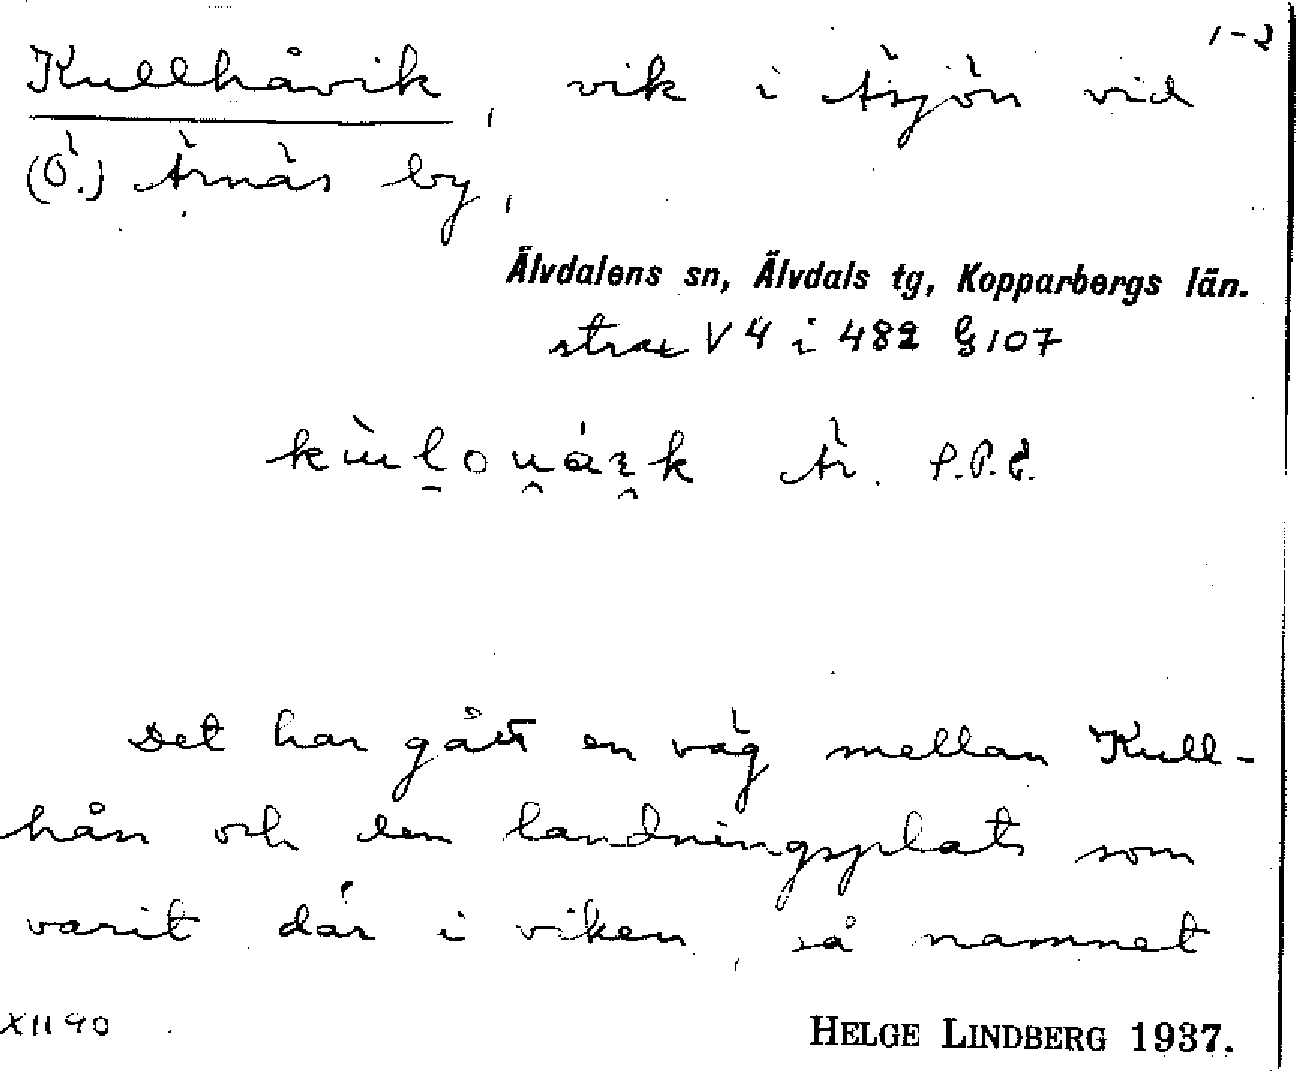 1-2
Kullhåvik, vik i Äsjön vid
(Ö.) Ärnäs by,
Älvdalens sn, Älvdals tg, Kopparbergs län.
strax V 4 i 482 § 107
Är. S.P.E.
Det har gått en väg mellan Kull-
hån och den landningsplats som
varit där i viken, så namnet
XII 90
HELGE LINDBERG 1937.